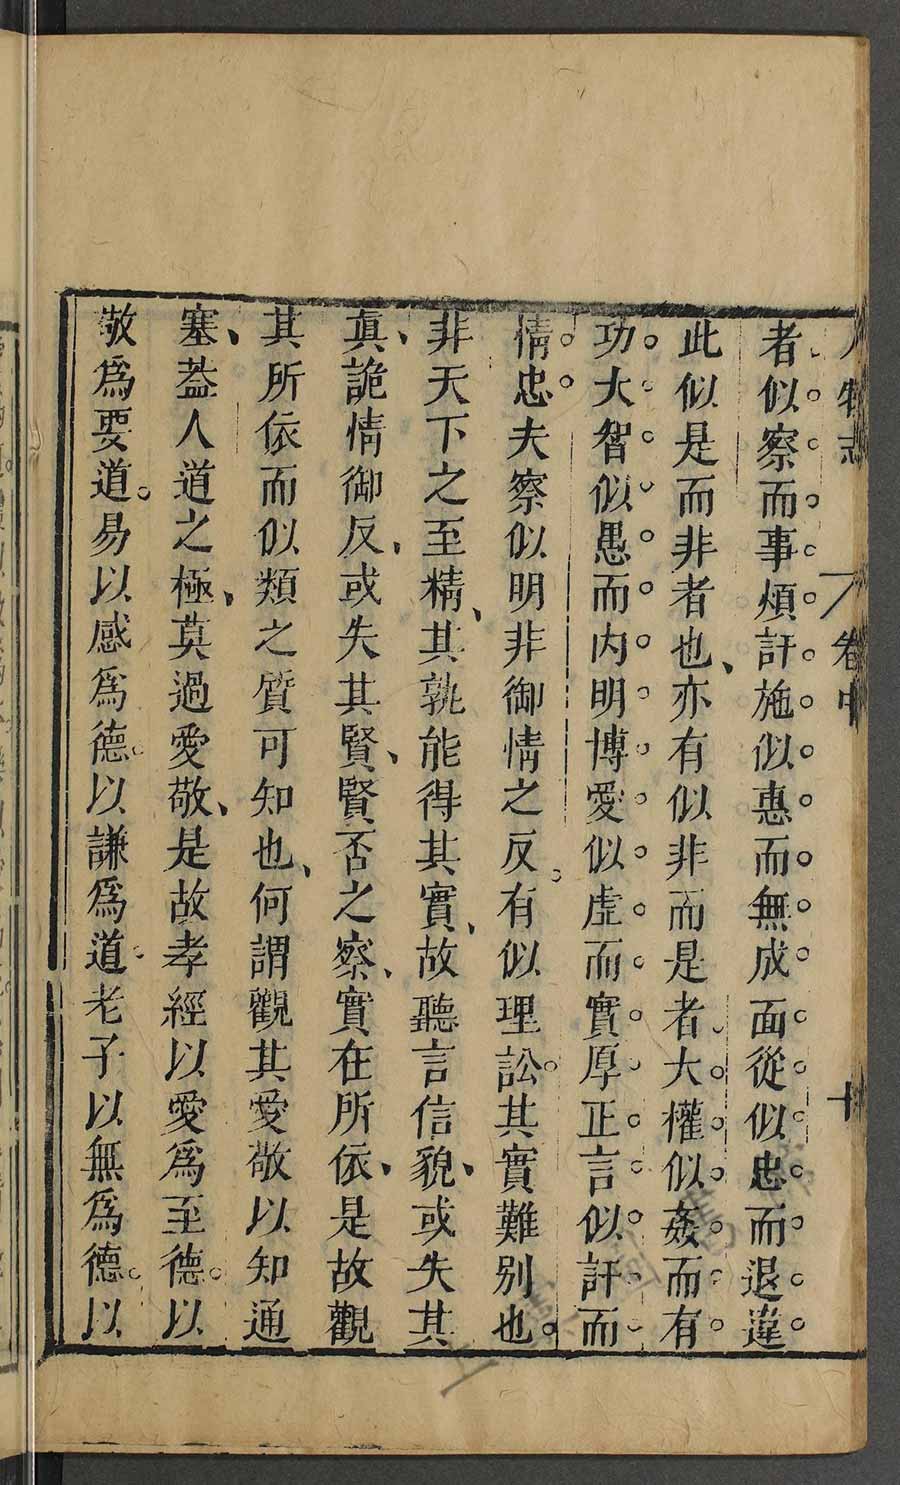 人物志 卷中 十
者似察而事煩訐施似惠而無成面從似忠而退違
此似是而非者也亦有似非而是者大權似姦而有
功大智似愚而内明博愛似虛而實厚正言似訐而
情忠夫察似明非御情之反有似理訟其實難别也
非天下之至精其孰能得其實故聽言信貌或失其
真詭情御反或失其賢賢否之察實在所依是故觀
其所依而似類之質可知也何謂觀其愛敬以知通
塞葢人道之極莫過愛敬是故孝經以愛爲至德以
敬爲要道易以感爲德以謙爲道老子以無爲德以